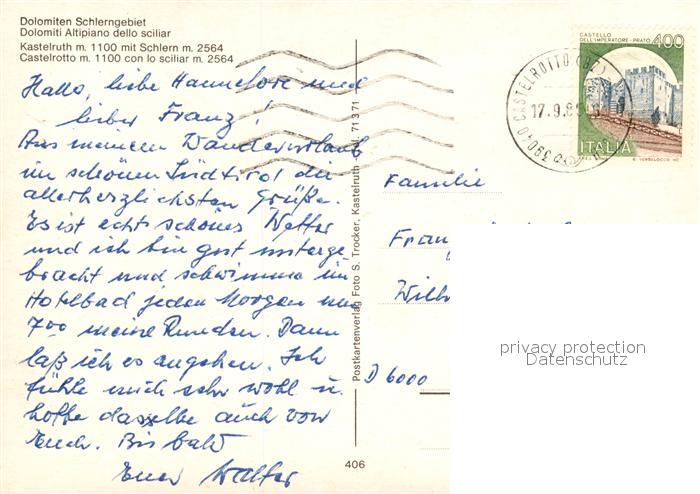 Dolomiten Schlerngebiet
Dolomiti Altipiano dello sciliar
Kastelruth m. 1100 mit Schlern m. 2564
Castelrotto m. 1100 con lo sciliar m. 2564
Hallo, liebe Hannelore und
lieber Franz!
Aus meinem Wanderurlaub
im schönen Südtirol die
allerherzlichsten Grüße.
Es ist echt schönes Wetter
und ich bin gut unterge-
bracht und schwimme im
Hotelbad jeden Morgen um
700 meine Runden. Dann
laß ich es angehen. Ich
fühle mich sehr wohl u.
hoffe dasselbe auch von
Euch. Bis bald
Euer Walter
Postkartenverlag Foto S. Trocker, Kastelruth Tel. 71371
406
CASTELLO
DELL'IMPERATORE - PRATO
400
ITALIA
39040 CASTELROTTO (BZ)
17.9.8
Familie
Franz
Wilh
D 6000
privacy protection
Datenschutz